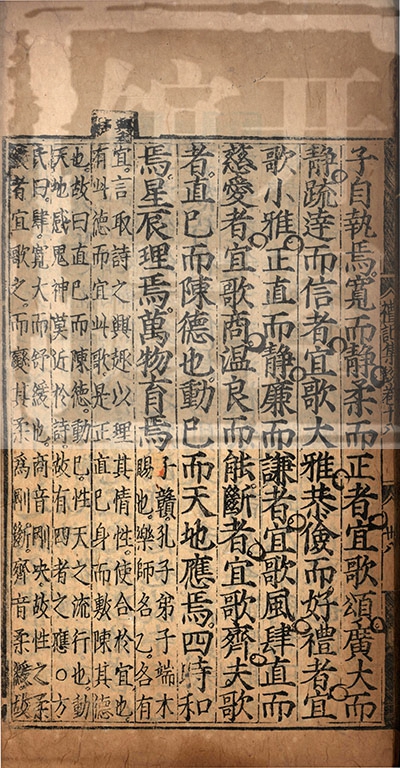 子自執焉寬而靜柔而正者宜歌頌廣大而
靜疏逹而信者宜歌大雅恭儉而好禮者宜
歌小雅正直而靜廉而謙者宜歌風肆直而
慈愛者宜歌商温良而能斷者宜歌齊夫歌
者直已而陳德也動已而天地應焉四時和
焉星辰理焉萬物育焉
子贛孔子弟子端木
賜也樂師名乙各有
宜言取詩之興趣以理其情性使合於宜也
有此德而宜此歌是正直已身而敷陳其德
也故曰直已而陳德動已性天之流行也動
天地感鬼神莫近於詩故有四者之應○方
氏曰肆寬大而舒緩也商音剛决故性之柔
緩者宜歌之而變其柔爲剛斷齊音柔緩故